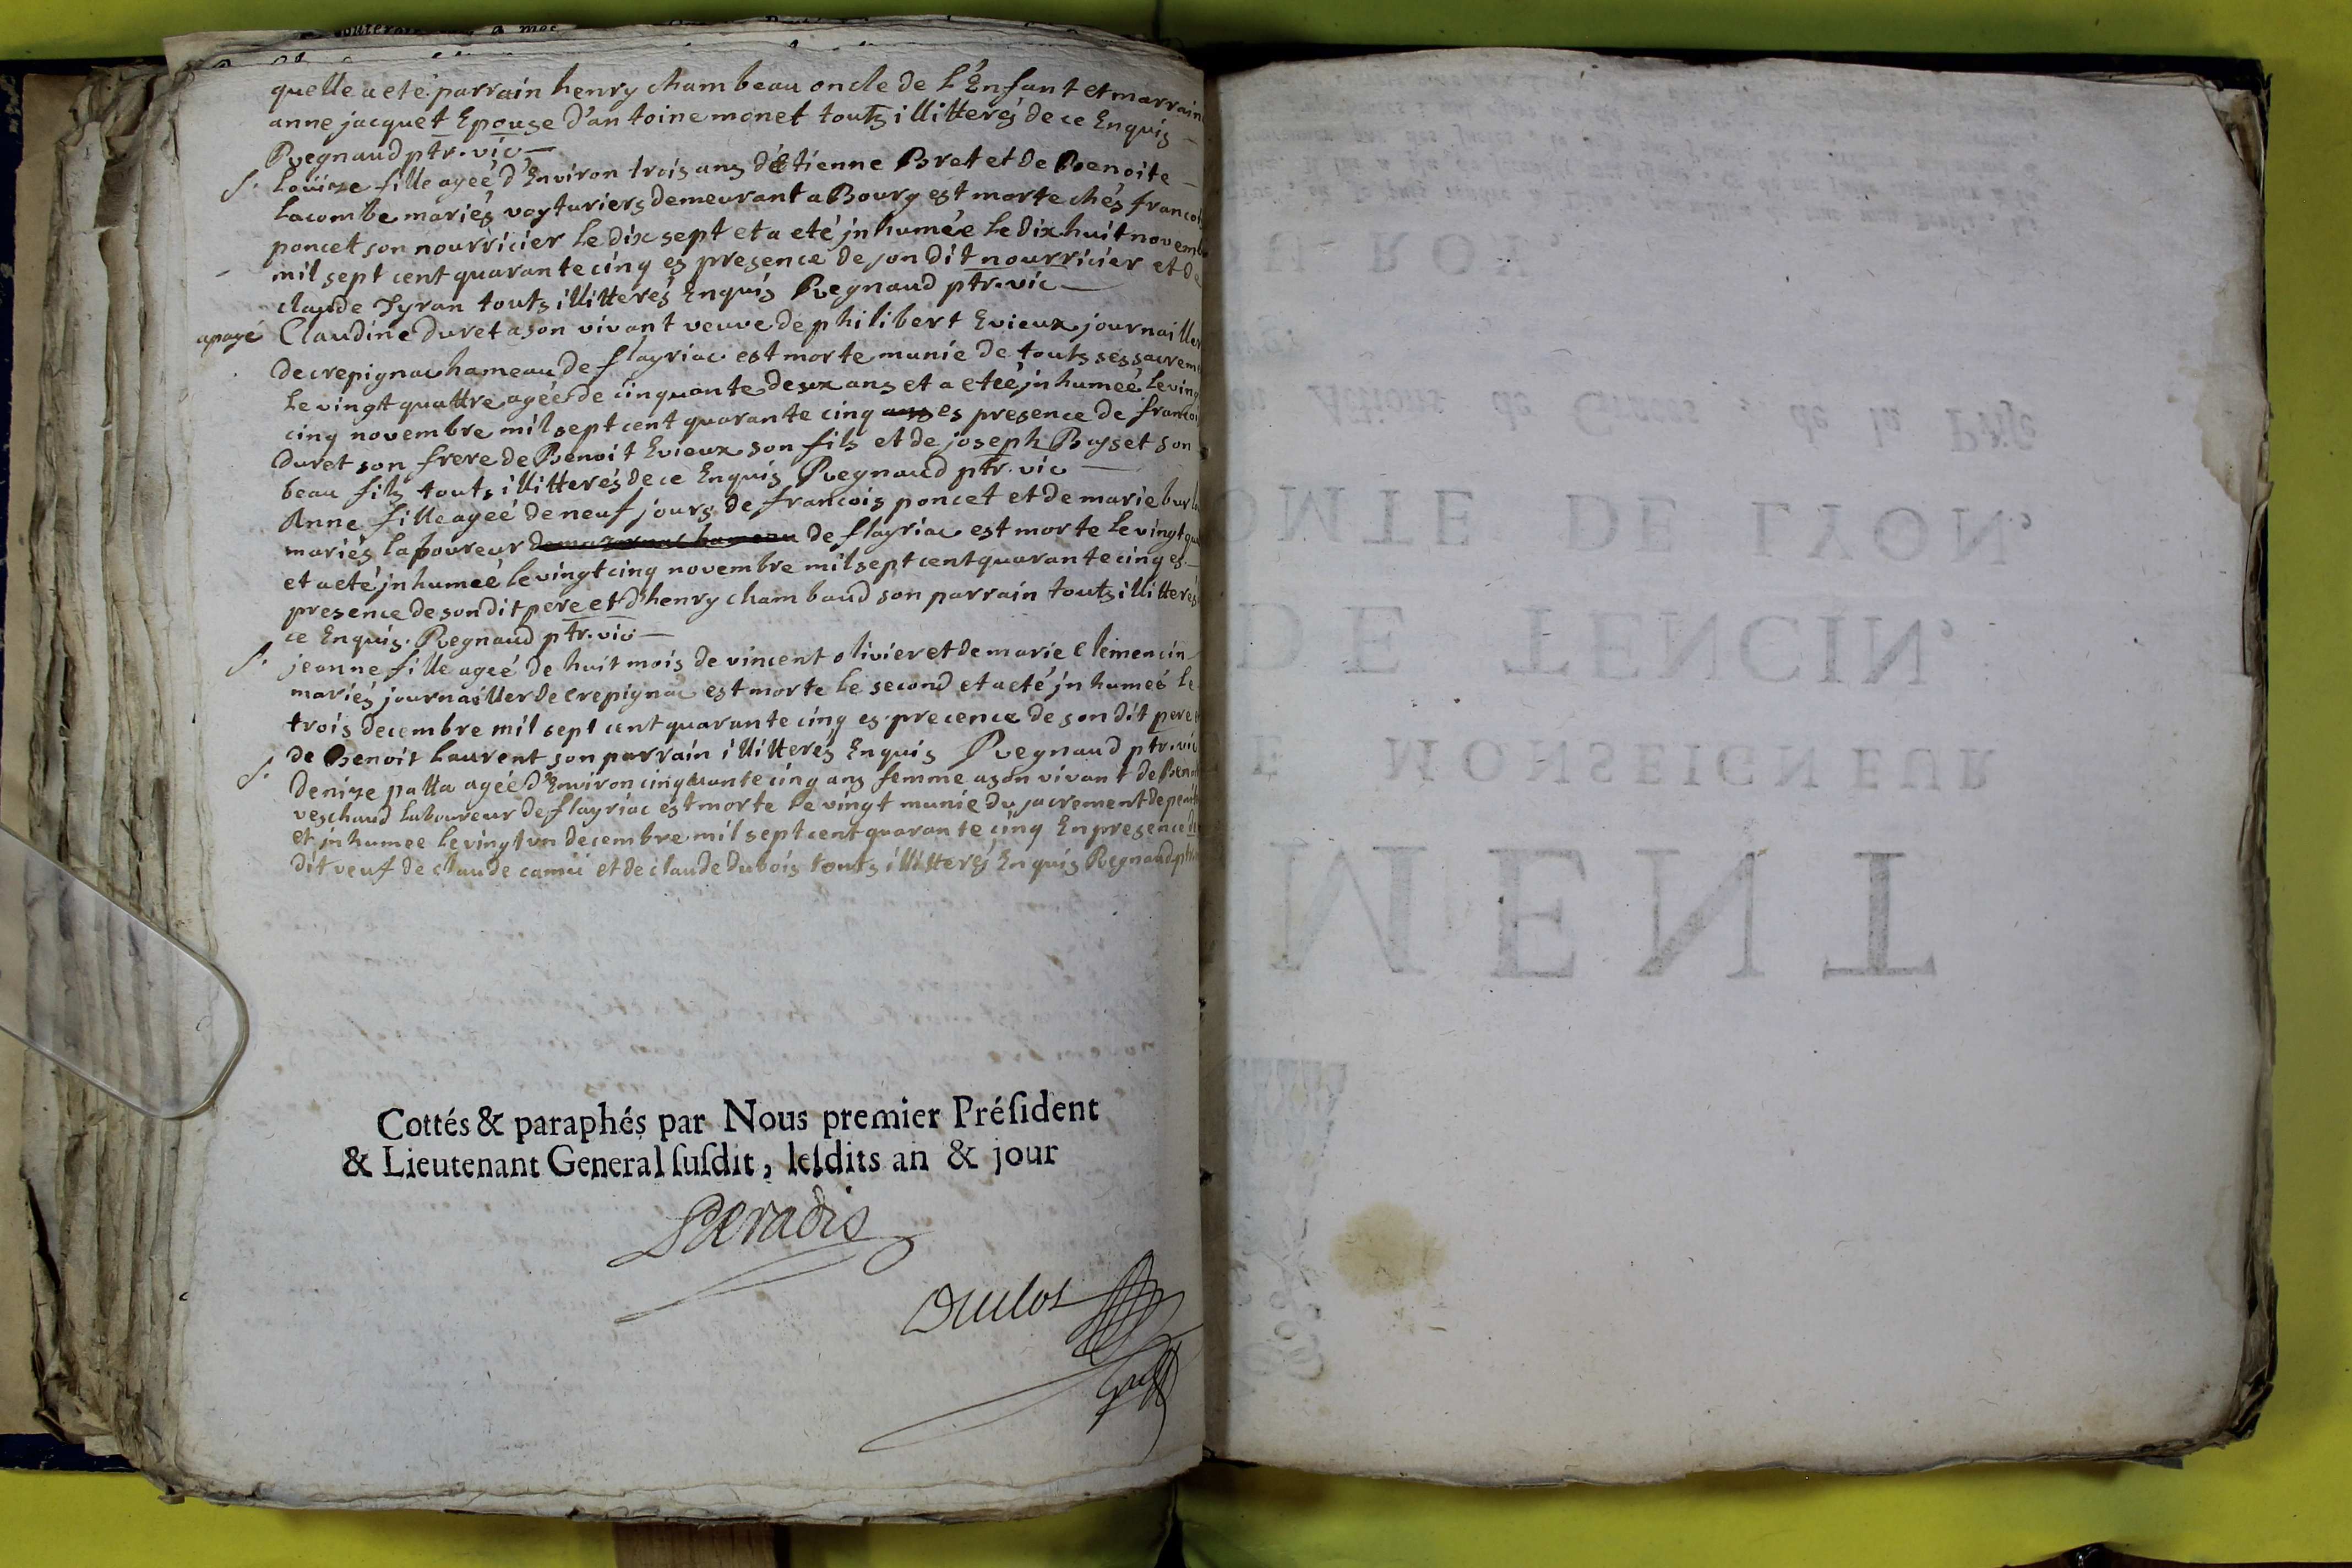 quelle a eté parrain henry chambeau oncle de l'Enfant et marrain
anne jacquet Epouse d'antoine monet touts illitterés de ce Enquis
Regnaud ptr. vic
s. Louize fille ageé d'Environ trois ans d'Etienne Bret et de Benoite
Lacombe mariés voyturiers demeurant a Bourg est morte chés francois
poncet son nourricier le dix sept et a eté jnhumée le dix huit novemb
mil sept cent quarante cinq es presence de son dit nourricier et de
claude Tyran touts illitterés Enquis Regnaud ptr. vic
apagé Claudine duret a son vivant veuve de philibert Evieux journailler
de crepignac hameau de flayriac est morte munie de touts ses sacrem
le vingt quattre ageé de cinquante deux ans et a eteé jnhumeé le ving
cinq novembre mil sept cent quarante cinq ans es presence de francoi
duret son frere de Benoit Evieux son fils et de joseph Buyset son
beau fils touts illitterés de ce Enquis Regnaud ptr. vic
Anne fille ageé de neuf jours de francois poncet et de marie
mariés laboureur de flayriac est morte le vingt qua
et a eté jnhumeé le vingt cinq novembre mil sept cent quarante cinq es
presence de son dit pere et d'henry chambaud son parrain touts illitterés
ce Enquis. Regnaud ptr. vic
s. jeanne fille ageé de huit mois de vincent olivier et de marie Clemencin
mariés journailler de Crepignac est morte le second et a eté jnhumeé le
trois decembre mil sept cent quarante cinq es precence de son dit pere et
de Benoit Laurent son parrain illitterés Enquis Regnaud ptr. vic
s. denize patta ageé d'Environ cinquante cinq ans femme a son vivant de Beno
veschaud laboureur de flayriac est morte le vingt munie du sacrement de penit
et jnhumee le vingt un decembre mil sept cent quarante cinq En presence du
dit veuf de claude camu et de claude dubois touts illitterés Enquis Regnaud ptr
Cottés & paraphés par Nous premier Préſident
& Lieutenant General ſuſdit, leſdits an & jour
Peradis
Duclos
MENT
MONSEIGNEUR
DE TENCIN,
OMTE DE LYON,
de Actions de Graces, de la Priſe
U ROY,